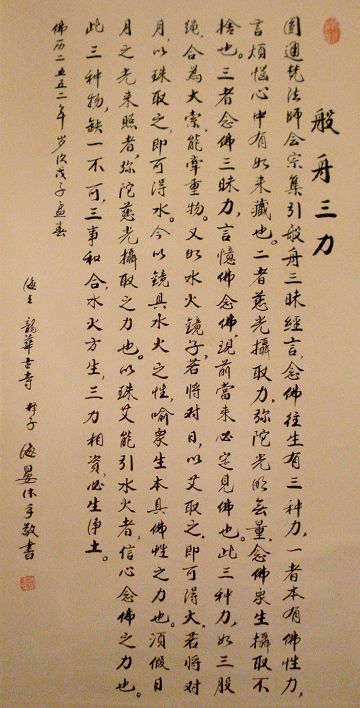 般舟三力
圆通梵法師會宗集引般舟三昧經言念佛往生有三种力，一者本有佛性力，
言煩惱心中有如来藏也。二者慈光攝取力，弥陀光明無量，念佛衆生攝取不
捨也。三者念佛三昧力，言憶佛念佛，現前當来必定見佛也。此三种力，如三股
绳，合為大索，能牵重物。又如水火鏡子，若將对日，以艾取之，即可得火。若將对
月，以珠取之，即可得水。今以鏡具水火之性，喻衆生本具佛性之力也。須假日
月之光来照者，弥陀慈光攝取之力也。以珠艾能引水火者，信心念佛之力也。
此三种物，缺一不可，三事和合，水火方生，三力相資，必生净土。
佛历二五五二年 岁次戊子孟春
海上龍華古寺 释子 海晏沐手敬書